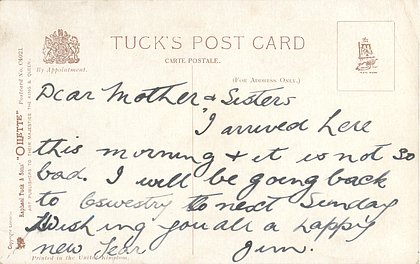 TUCK'S POST CARD
CARTE POSTALE.
By Appointment.
(FOR ADDRESS ONLY.)
Dear Mother & Sisters
I arrived here
this morning & it is not so
bad. I will be going back
to Oswestry to next Sunday
Wishing you all a happy
new Year Jim.
Printed in the United Kingdom.
Raphael Tuck & Sons' "OILETTE"
ART PUBLISHERS TO THEIR MAJESTIES THE KING & QUEEN.